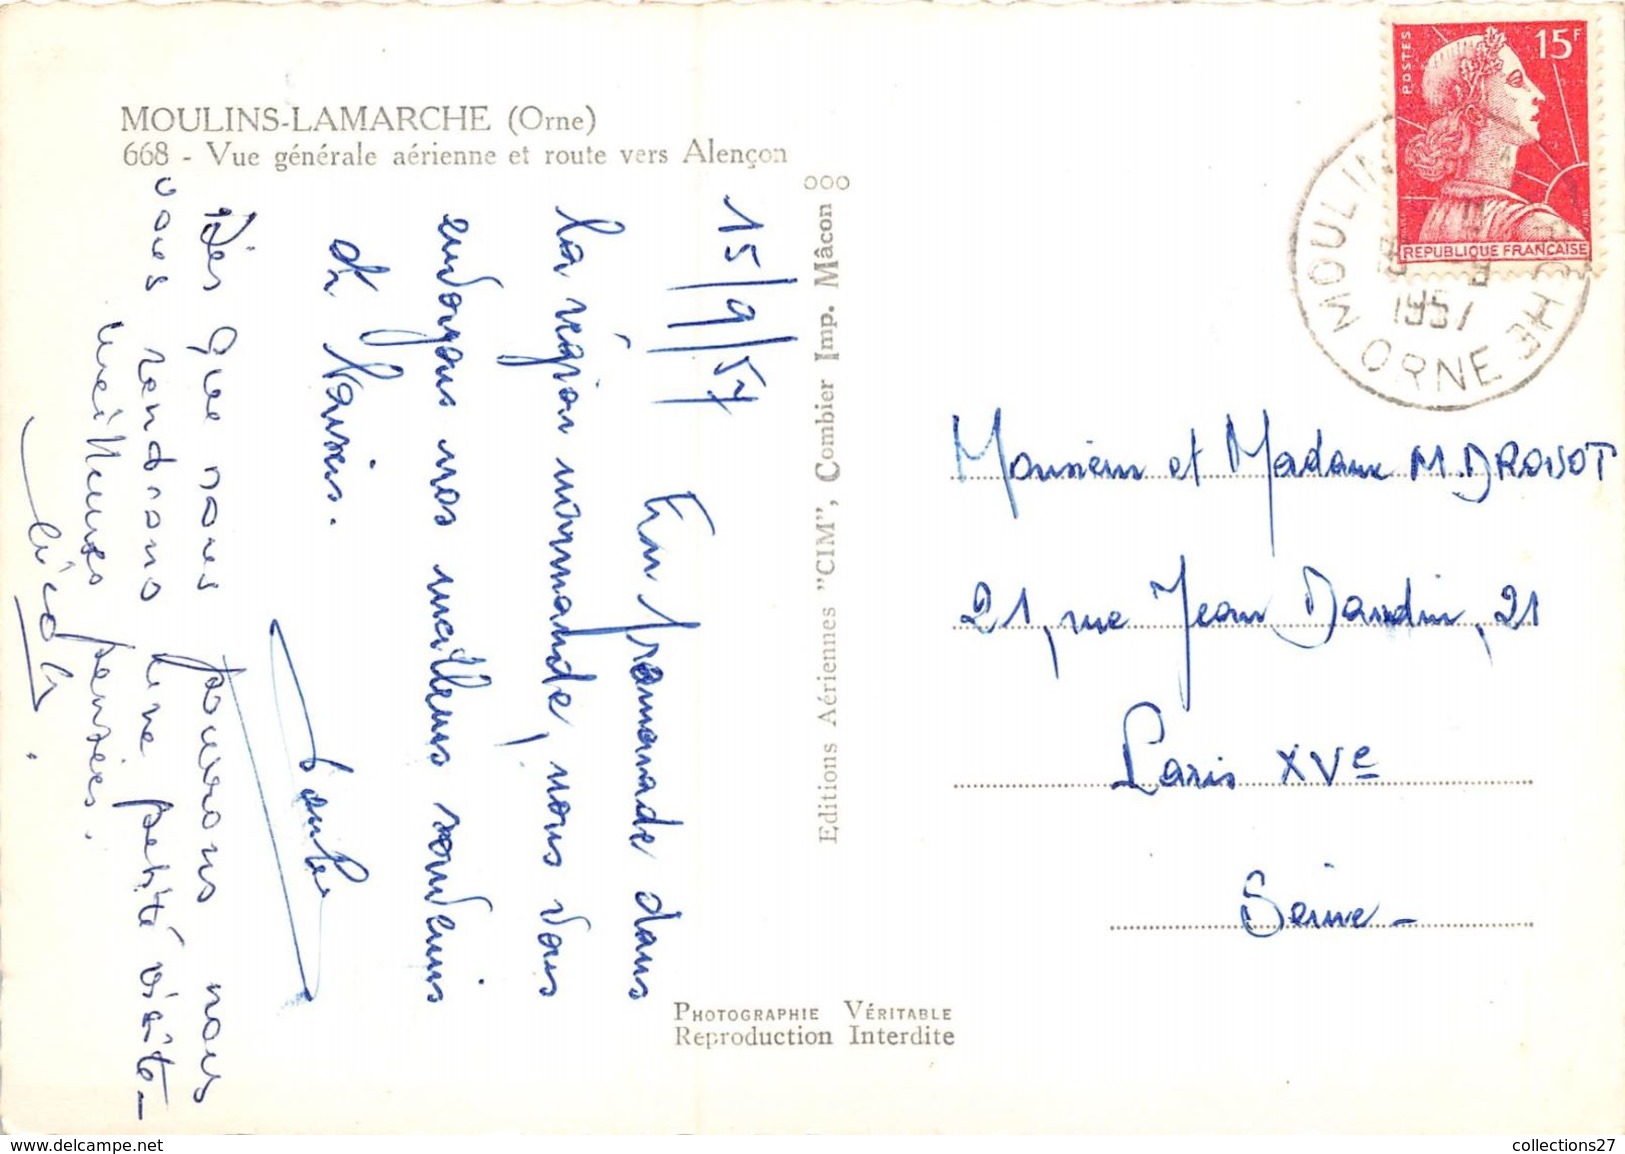 MOULINS-LAMARCHE (Orne)
668 - Vue générale aérienne et route vers Alençon
15/9/57
En promenade dans
la région normande, nous vous
envoyons nos meilleurs souvenirs
Dès que nous pourrons nous
vous rendrons une petite visite_
meilleures pensées.
ooo
Editions Aériennes "CIM", Combier Imp. Mâcon
PHOTOGRAPHIE VÉRITABLE
Reproduction Interdite
POSTES
15F
REPUBLIQUE FRANÇAISE
MOULIN CHE
1957
ORNE
Monsieur et Madame M. DROUOT
21, rue Jean Daudin, 21
Paris XVe
Seine -
delcampe.net
collections27